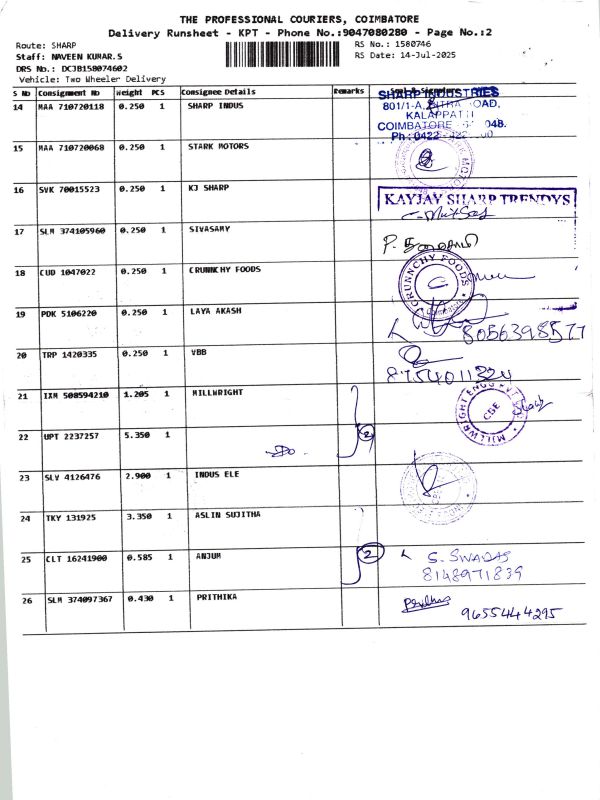 THE PROFESSIONAL COURIERS, COIMBATORE
Delivery Runsheet - KPT - Phone No.:9047080280 - Page No.:2
Route: SHARP
RS No.: 1580746
Staff: NAVEEN KUMAR.S
RS Date: 14-Jul-2025
DRS No.: DCJB158074602
Vehicle: Two Wheeler Delivery
S No Consignment No Weight PCS Consignee Details Remarks
14 MAA 710720118 0.250 1 SHARP INDUS
SHARP INDUSTRIES
801/1-A, ROAD,
KALAPPATTI
COIMBATORE 048.
Ph : 0422
15 MAA 710720068 0.250 1 STARK MOTORS
16 SVK 70015523 0.250 1 KJ SHARP
KAYJAY SHARP TRENDYS
17 SLM 374105960 0.250 1 SIVASAMY
18 CUD 1047022 0.250 1 CRUNNCHY FOODS
CRUNNCHY FOODS
19 PDK 5106220 0.250 1 LAYA AKASH
8056398577
20 TRP 1420335 0.250 1 VBB
8754011324
21 IXM 508594210 1.205 1 MILLWRIGHT
MILLWRIGHT ENGG
CBE
22 UPT 2237257 5.350 1 -Do- 2
23 SLV 4126476 2.900 1 INDUS ELE
24 TKY 131925 3.350 1 ASLIN SUJITHA
25 CLT 16241900 0.585 1 ANJUM 2
S. SWADAS
8148971839
26 SLM 374097367 0.430 1 PRITHIKA
9655444295